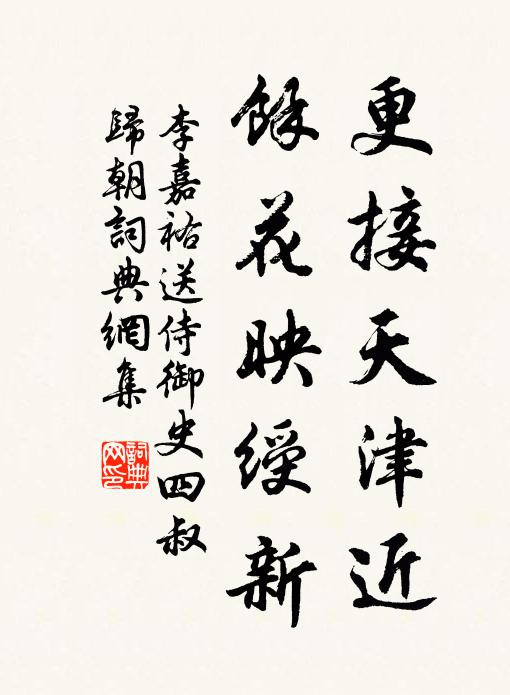 更接天津近
餘花映綬新
李嘉祐送侍御史四叔
歸朝詞典網集
詞典
网印